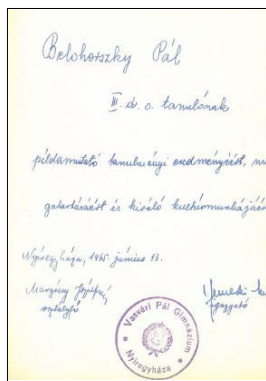 Belohorszky Pál
III. d. o. tanulónak
példamutató tanulmányi eredményéért,
magatartásáért és kiváló kultúrmunkájáért
Nyíregyháza, 1965 június 13.
osztályfő igazgató
Vasvári Pál Gimnázium
Nyíregyháza